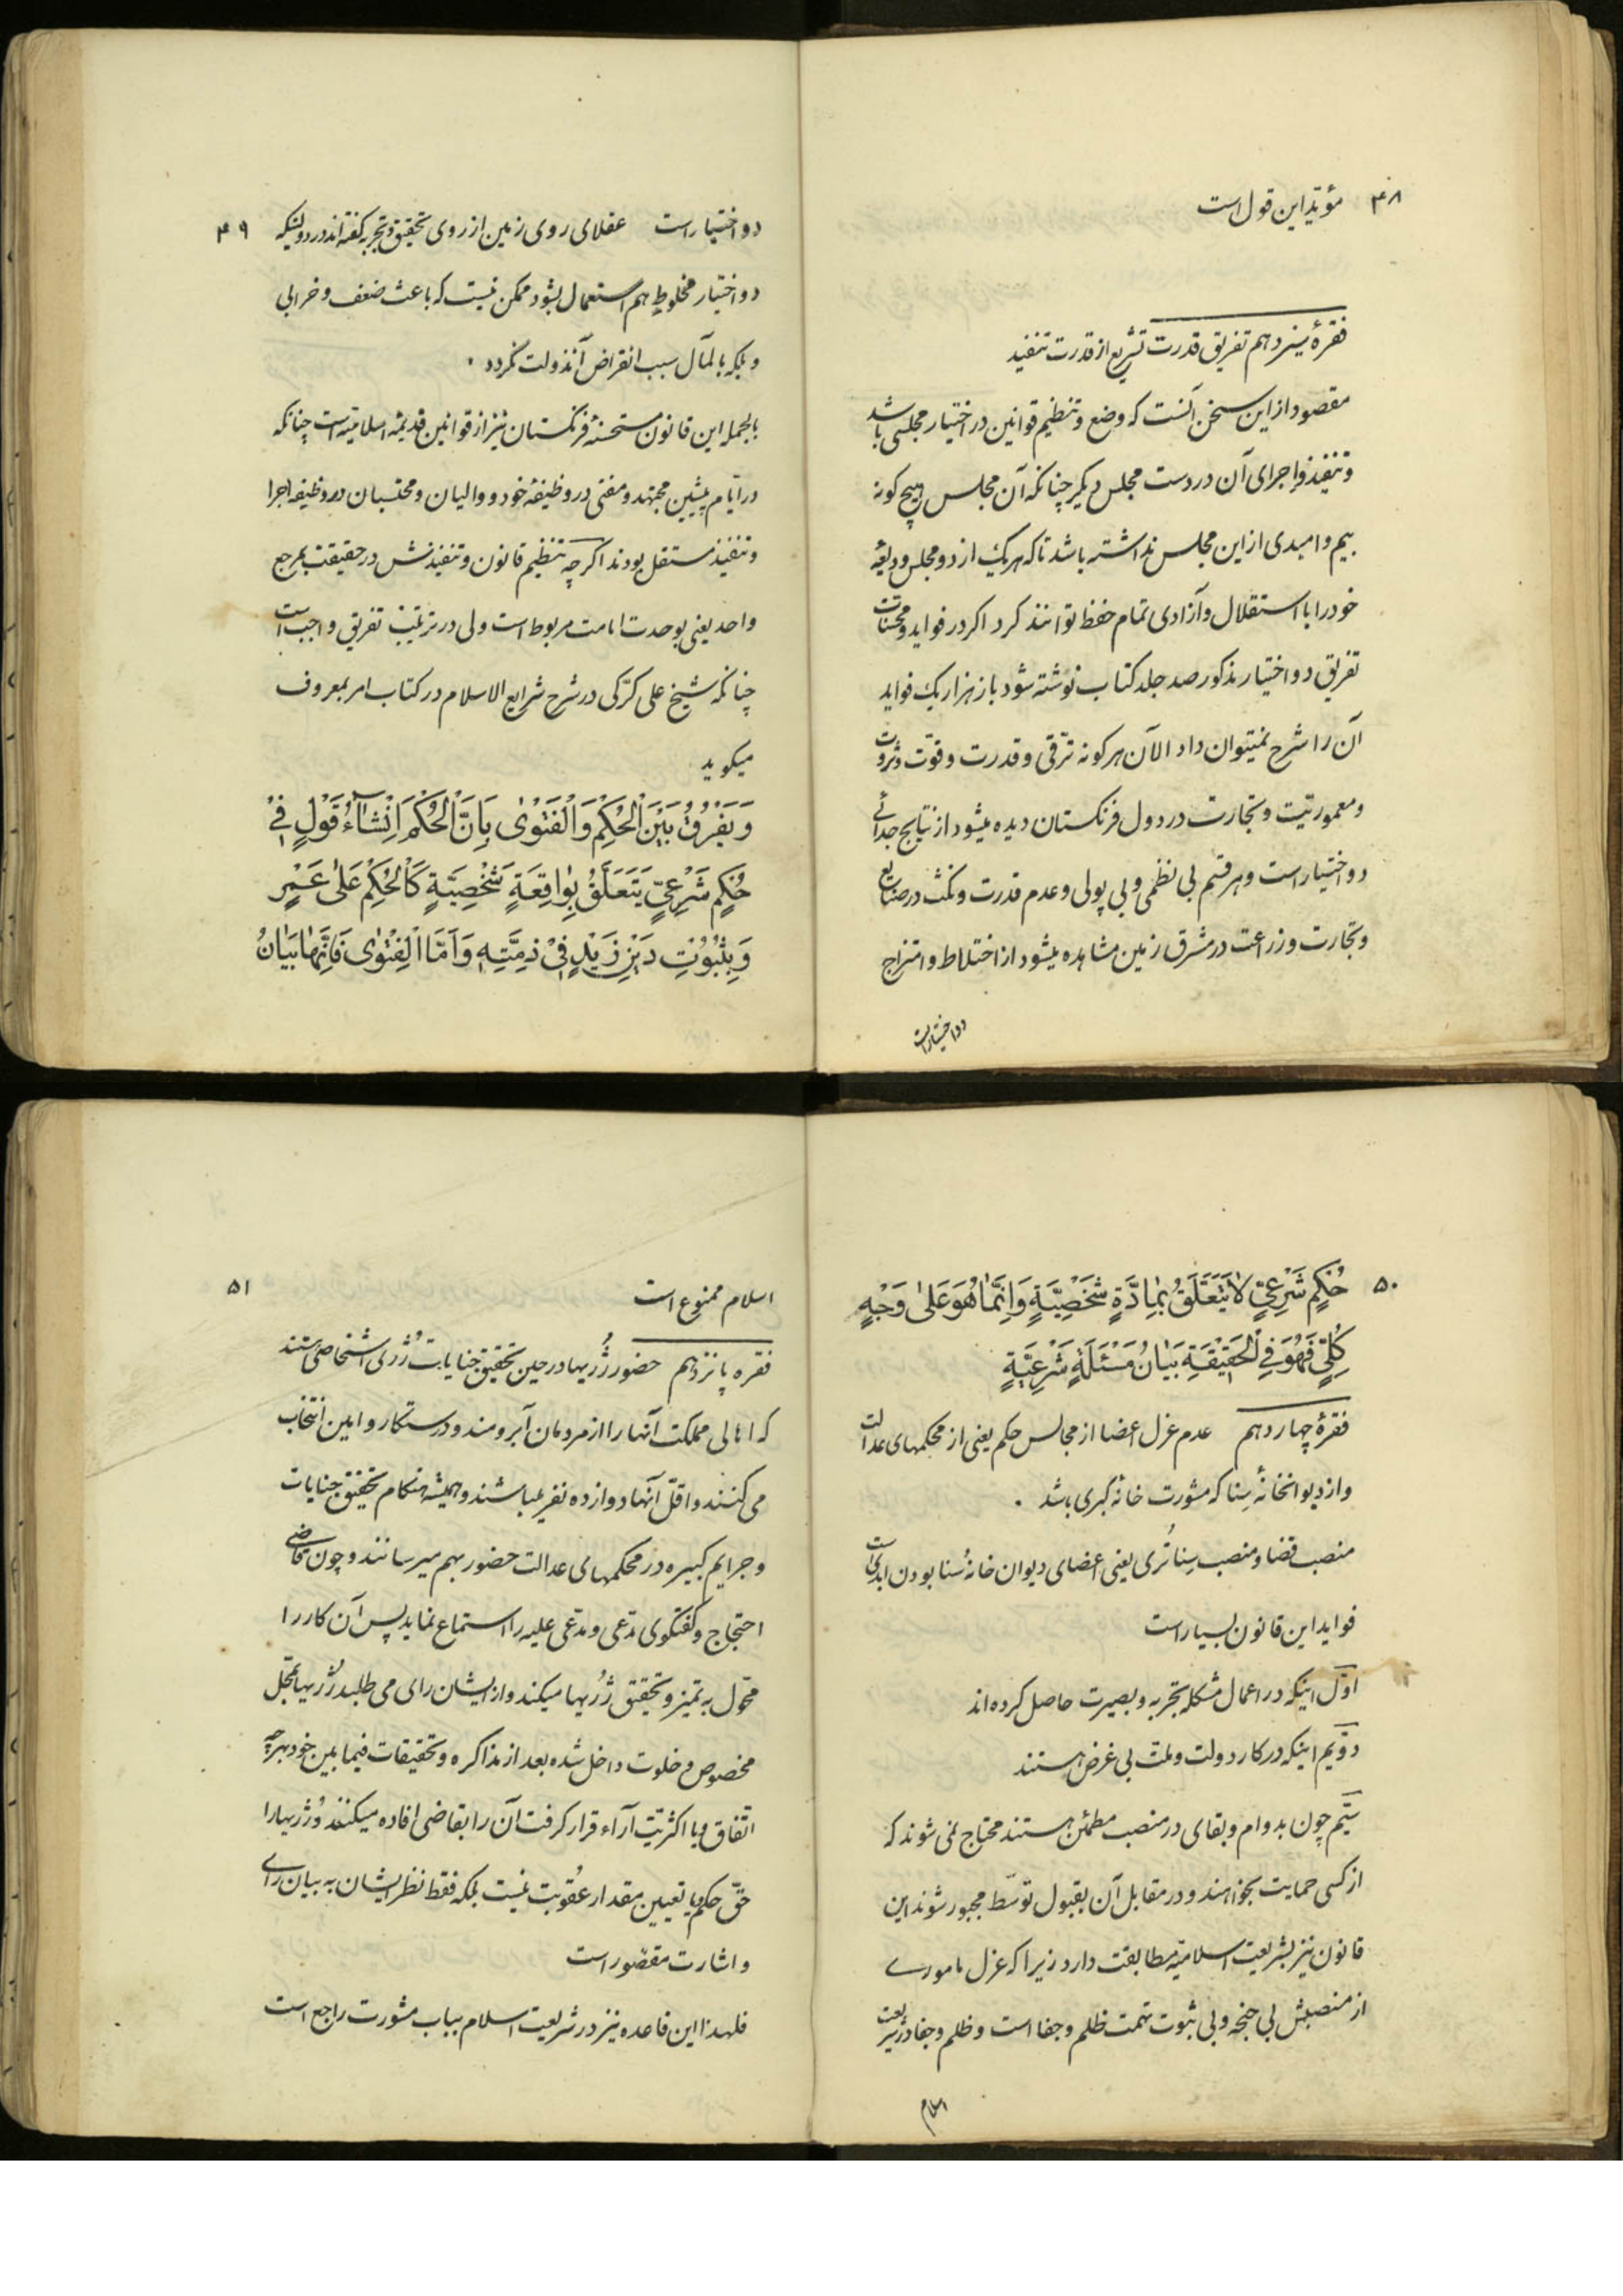 ۴۸
مؤیّد این قول است
فقرهٔ سیزدهم تفریق قدرت تشریع از قدرت تنفیذ
مقصود از این سخن آنست که وضع و تنظیم قوانین در اختیار مجلسی باشد
و تنفیذ و اجرای آن در دست مجلس دیگر چنانکه آن مجلس هیچ گونه
بیم و امیدی از این مجلس نداشته باشد تا که هریک از دو مجلس ودیعهٔ
خود را با استقلال و آزادی تمام حفظ توانند کرد اگر در فواید و محسّنات
تفریق دو اختیار مذکور صد جلد کتاب نوشته شود باز هزار یک فواید
آن را شرح نمیتوان داد الآن هرگونه ترقی و قدرت و قوّت و ثروت
و معموریّت و تجارت در دول فرنگستان دیده میشود از نتایج جدائی
دو اختیار است و هر قسم بی نظمی و بی پولی و عدم قدرت و نکث در صنایع
و تجارت و زراعت در مشرق زمین مشاهده میشود از اختلاط و امتزاج
دو اختیار است
۴۹
دو اختیار است عقلای روی زمین از روی تحقیق و تجربه گفته‌اند در دولتیکه
دو اختیار مخلوط هم استعمال بشود ممکن نیست که باعث ضعف و خرابی
و بلکه بالمآل سبب انقراض آندولت نگردد ٠
بالجمله این قانون مستحسنهٔ فرنگستان نیز از قوانین قدیمهٔ اسلامیّه است چنانکه
در ایّام پیشین مجتهد و مفتی در وظیفهٔ خود و والیان و محتسبان در وظیفه اجرا
و تنفیذ مستقل بودند اگرچه تنظیم قانون و تنفیذش در حقیقت بمرجع
واحد یعنی بوحدت امامت مربوط است ولی در ترتیب تفریق واجب است
چنانکه شیخ علی کرّکی در شرح شرایع الاسلام در کتاب امر بمعروف
میگوید
وَ یُفَرِّقُ بَیْنَ الْحُکْمِ وَالْفَتْوٰی بِاَنَّ الْحُکْمَ اِنْشَآءُ قَوْلٍ فِیْ
حُکْمٍ شَرْعِیٍّ یَتَعَلَّقُ بِوٰاقِعَةٍ شَخْصِیَّةٍ کَالْحُکْمِ عَلٰی عَمْرٍ
وَ بِثُبُوْتِ دَیْنِ زَیْدٍ فِیْ ذِمَّتِهِ وَ اَمَّا الْفَتْوٰی فَاِنَّهٰا بَیٰانُ
۵۰
حُکْمٍ شَرْعِیٍّ لاٰ یَتَعَلَّقُ بِمٰادَّةٍ شَخْصِیَّةٍ وَ اِنَّمٰا هُوَ عَلٰی وَجْهٍ
کُلِّیٍّ فَهُوَ فِی الْحَقِیْقَةِ بَیٰانُ مَسْئَلَةٍ شَرْعِیَّةٍ
فقرهٔ چهاردهم عدم عزل اعضا از مجالس حکم یعنی از محکمهای عدالت
و از دیوانخانهٔ سنا که مشورت خانهٔ کبری باشد ٠
منصب قضا و منصب سِناتُری یعنی اعضای دیوان خانهٔ سُنا بودن ابدیست
فواید این قانون بسیار است
اوّل اینکه در اعمال مشکله تجربه و بصیرت حاصل کرده‌اند
دوّیم اینکه در کار دولت و ملت بی غرض هستند
سیّم چون بدوام و بقای در منصب مطمئن هستند محتاج نمی شوند که
از کسی حمایت بخواهند و در مقابل آن بقبول توسّط مجبور شوند این
قانون نیز بشریعت اسلامیّه مطابقت دارد زیرا که عزل مامورے
از منصبش بی جنحه و بی ثبوت تهمت ظلم و جفا است و ظلم و جفا در شریعت
اسلام
۵۱
اسلام ممنوع است
فقره پانزدهم حضور ژُریها در حین تحقیق جنایات ژُری اشخاصی هستند
که اهالی مملکت آنها را از مردمان آبرومند و درستکار و امین انتخاب
می کنند و اقلّ آنها دوازده نفر میباشند و همیشه هنگام تحقیق جنایات
و جرایم کبیره در محکمهای عدالت حضور بهم میرسانند و چون قاضی
احتجاج و گفتگوی مدّعی و مدّعی علیه را استماع نماید پس آن کار را
محوّل به تمیز و تحقیق ژُریها میکند و از ایشان رای می طلبد ژُریها بمحلّ
مخصوص و خلوت داخل شده بعد از مذاکره و تحقیقات فیما بین خود بهرچه
اتّفاق و یا اکثریّت آراء قرار گرفت آن را بقاضی افاده میکنند و ژُریها را
حقّ حکم و یا تعیین مقدار عقوبت نیست بلکه فقط نظر ایشان به بیان رای
و اشارت مقصور است
فلهذا این قاعده نیز در شریعت اسلام بباب مشورت راجع است